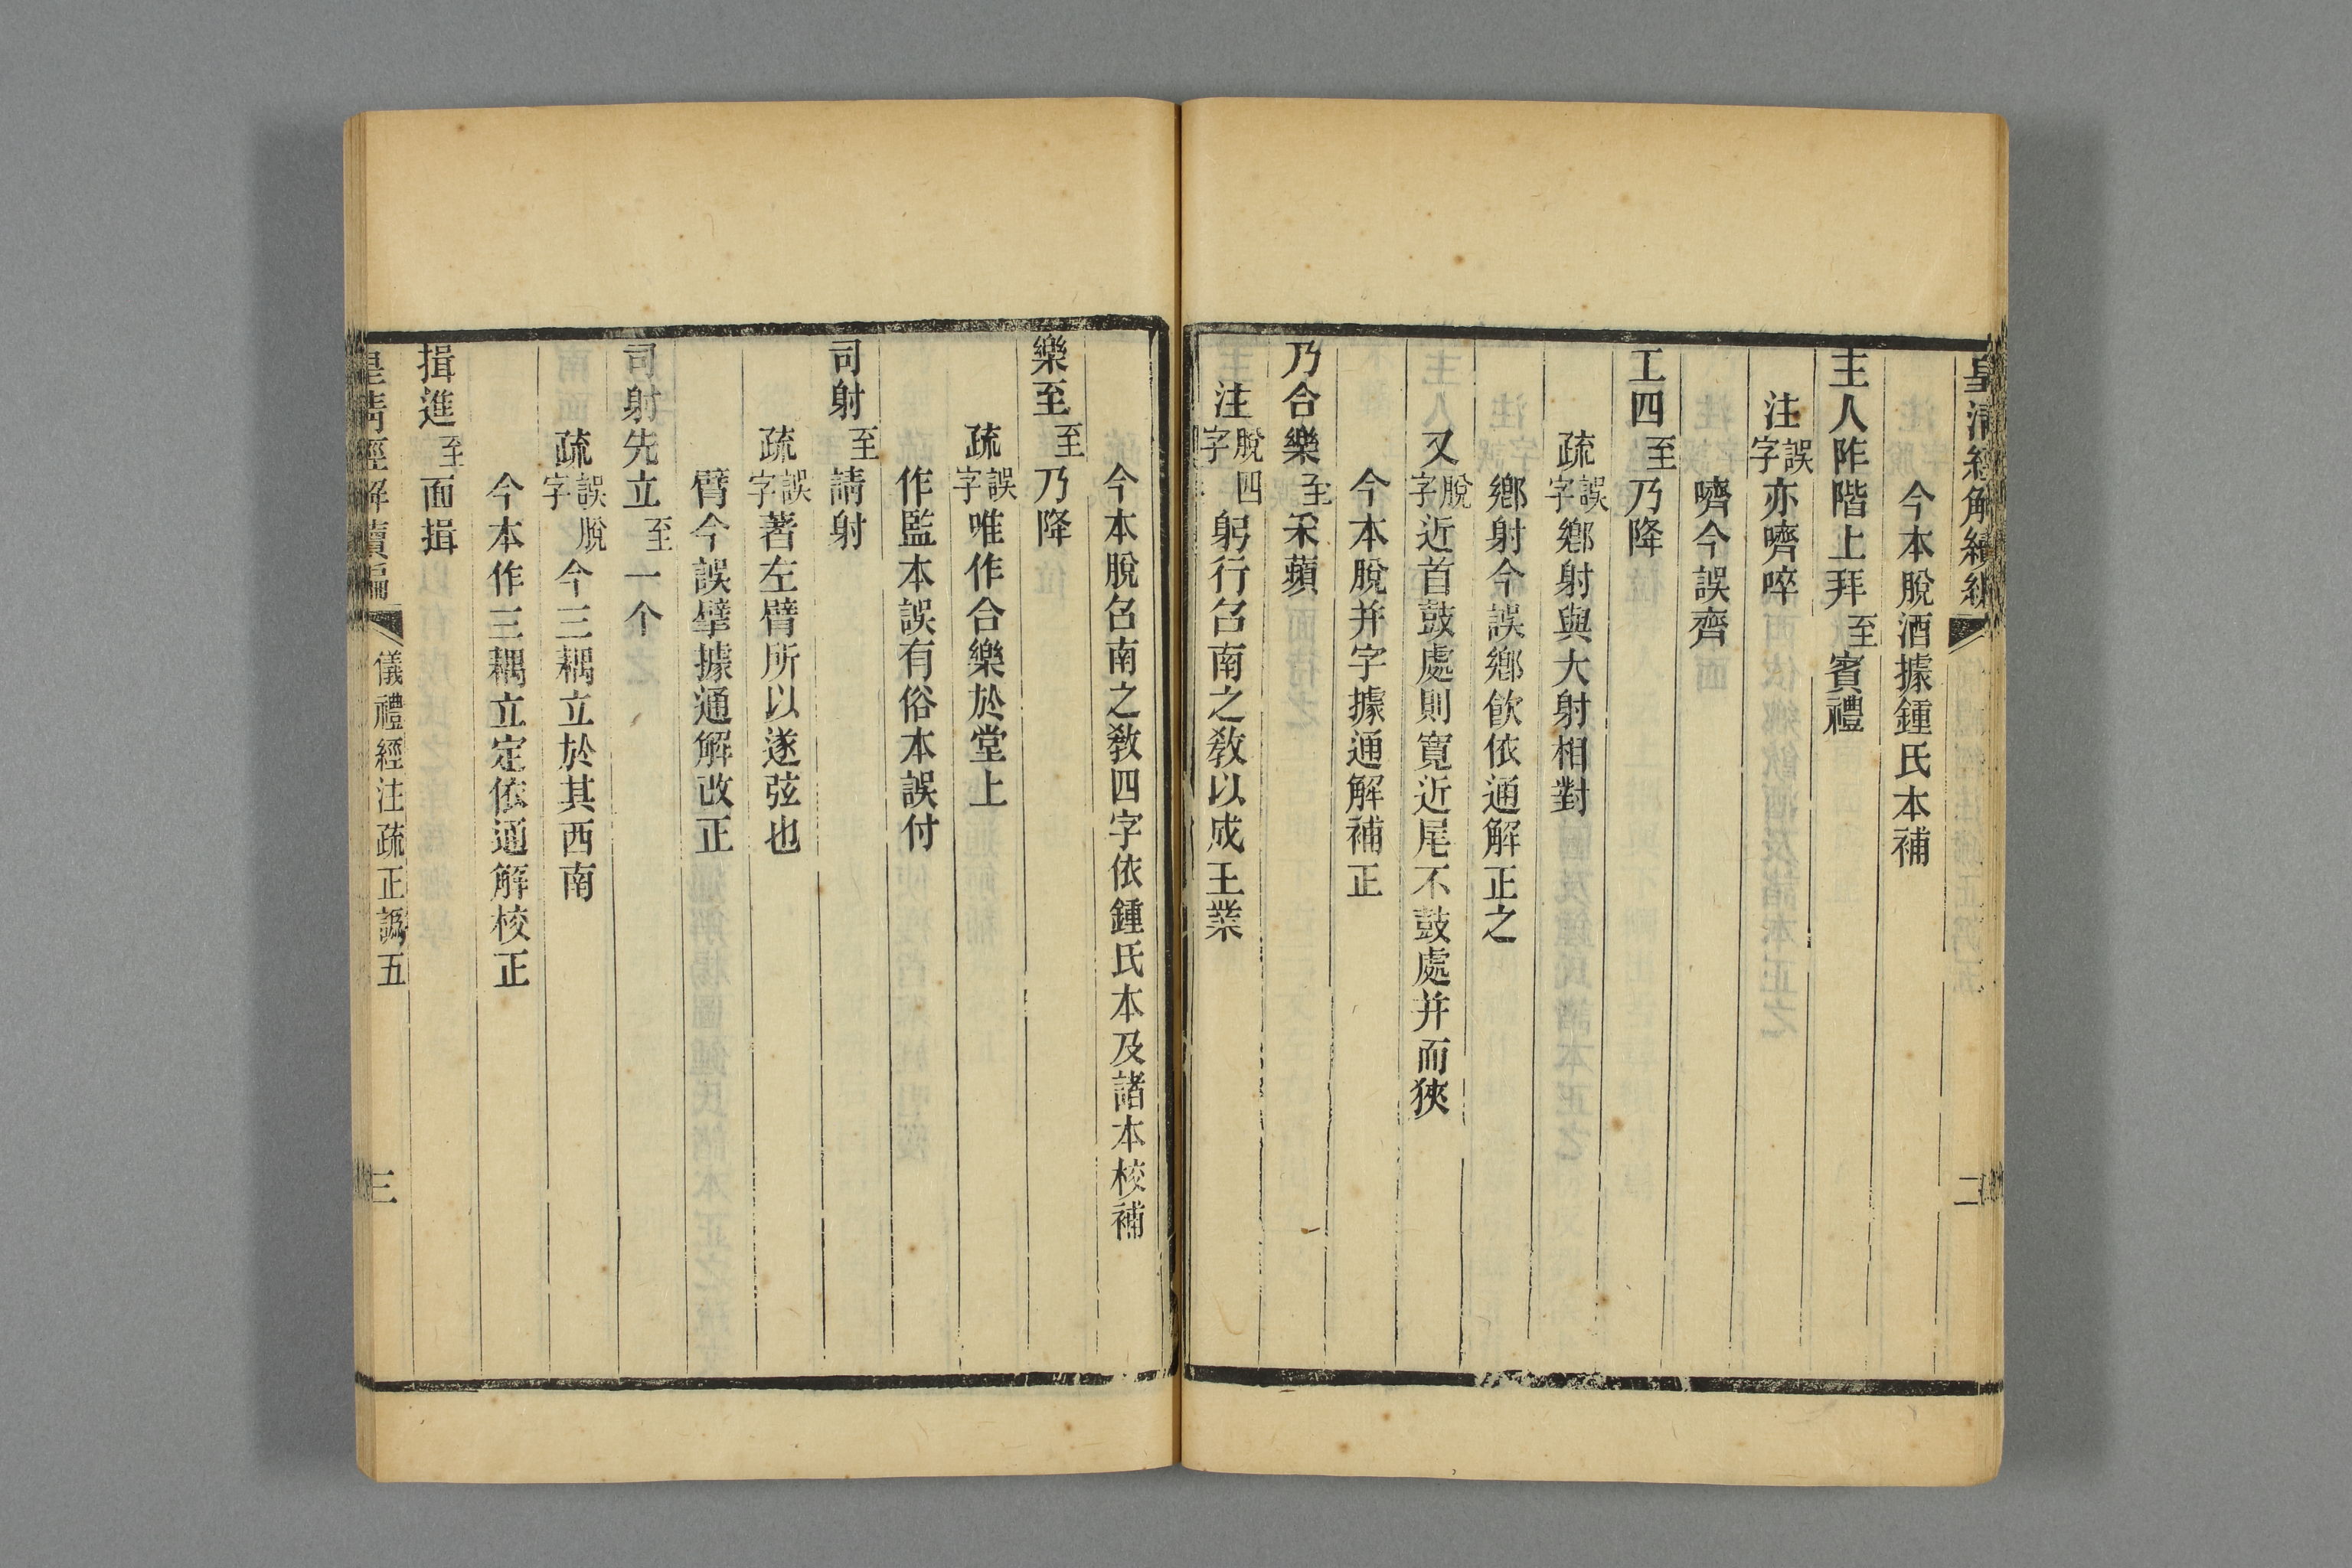 皇清經解續編
二
今本脫酒據鍾氏本補
主人阼階上拜至賓禮
注誤字亦嚌啐
嚌今誤齊
工四至乃降
疏誤字鄉射與大射相對
鄉射今誤鄉飮依通解正之
又脫字近首鼓處則寬近尾不鼓處并而狹
今本脫并字據通解補正
乃合樂至采蘋
注脫四字躬行召南之敎以成王業
今本脫召南之敎四字依鍾氏本及諸本校補
樂至至乃降
疏誤字唯作合樂於堂上
作監本誤有俗本誤付
司射至請射
疏誤字著左臂所以遂弦也
臂今誤擘據通解改正
司射先立至一个
疏誤脫字今三耦立於其西南
今本作三耦立定依通解校正
揖進至面揖
皇清經解續編
儀禮經注疏正譌五
三